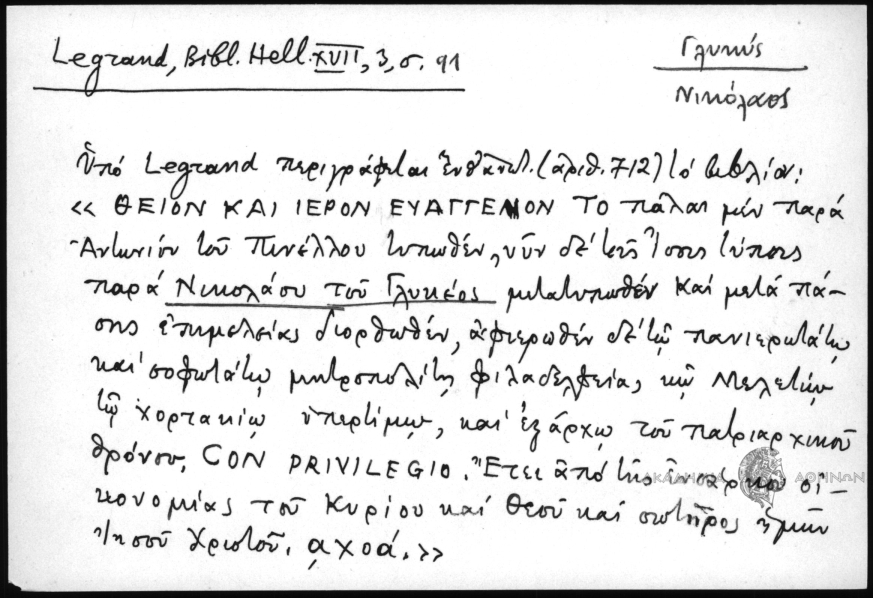 Legrand, Bibl. Hell. XVII, 3, σ. 91
Γλυκύς
Νικόλαος
Ὑπό Legrand περιγράφεται ἐνθ' ἀνωτ. (ἀριθ. 712) τό βιβλίον:
«ΘΕΙΟΝ ΚΑΙ ΙΕΡΟΝ ΕΥΑΓΓΕΛΙΟΝ ΤΟ πάλαι μέν παρά
Ἀντωνίου τοῦ Πινέλλου τυπωθέν, νῦν δέ τοῖς ἴσοις τύποις
παρά Νικολάου τοῦ Γλυκέος μετατυπωθέν καί μετά πά-
σης ἐπιμελείας διορθωθέν, ἀφιερωθέν δέ τῷ πανιερωτάτῳ
καί σοφωτάτῳ μητροπολίτῃ Φιλαδελφείας κῷ Μελετίῳ
τῷ Χορτακίῳ ὑπερτίμῳ, καί ἐξάρχῳ τοῦ πατριαρχικοῦ
θρόνου, CON PRIVILEGIO. Ἔτει ἀπό τῆς ἐνσάρκου οἰ-
κονομίας τοῦ Κυρίου καί Θεοῦ καί σωτῆρος ἡμῶν
Ἰησοῦ Χριστοῦ, αχοά.»
ΑΚΑΔΗΜΙΑ ΑΘΗΝΩΝ